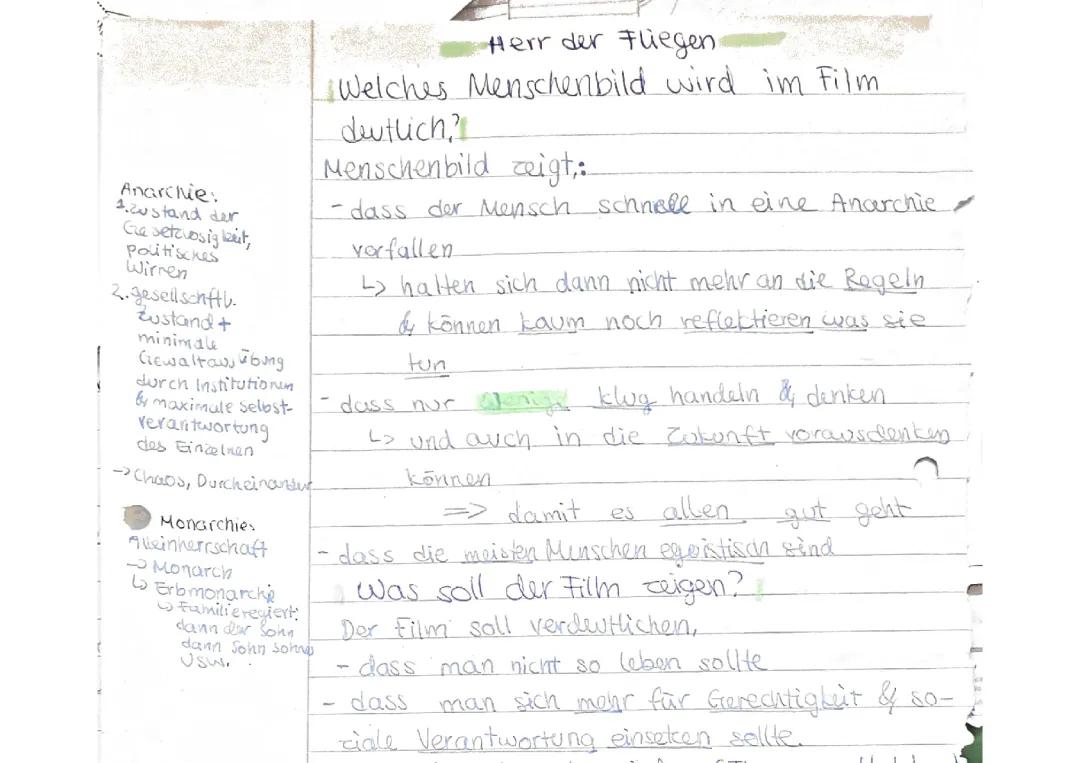 Herr der Fliegen
Welches Menschenbild wird im Film
deutlich?
Menschenbild zeigt,:
- dass der Mensch schnell in eine Anarchie
verfallen
↳ halten sich dann nicht mehr an die Regeln
& können kaum noch reflektieren was sie
tun
- dass nur wenige klug handeln & denken
↳ und auch in die Zukunft vorausdenken
können
=> damit es allen gut geht
- dass die meisten Menschen egoistisch sind
Was soll der Film zeigen?
Der Film soll verdeutlichen,
- dass man nicht so leben sollte
- dass man sich mehr für Gerechtigkeit & so-
ziale Verantwortung einsetzen sollte.
Anarchie:
1. Zustand der
Gesetzlosigkeit,
politisches
Wirren
2. gesellschftl.
Zustand +
minimale
Gewaltausübung
durch Institutionen
& maximale Selbst-
verantwortung
des Einzelnen
-> Chaos, Durcheinander
Monarchie:
Alleinherrschaft
-> Monarch
↳ Erbmonarchie
↳ Familie regiert:
dann der Sohn
dann Sohn Sohns
usw.